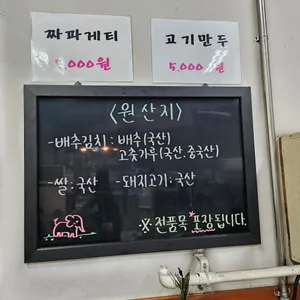 짜파게티
000원
고기만두
5,000원
<원산지>
-배추김치: 배추(국산)
고춧가루(국산, 중국산)
-쌀:국산 -돼지고기:국산
※전품목 포장됩니다.